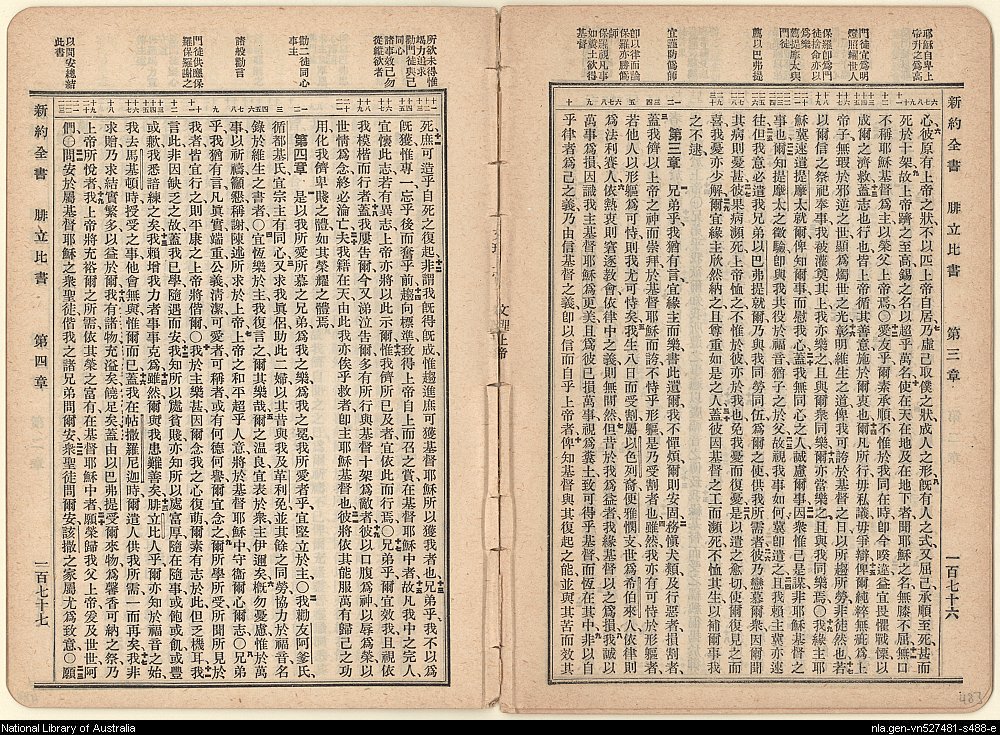 耶穌自卑上
帝升之爲高
門徒宜爲明
燈照耀世人
保羅卽爲門
徒捨命亦以
爲樂
薦提摩太與
門徒
薦以巴弗提
宜謹防僞師
卽以律而論
保羅亦勝僞
師
保羅視凡事
如糞土欲得
基督
新約全書 腓立比書 第三章 一百七十六
心、彼原有上帝之狀、不以匹上帝自居、乃虛己取僕之狀、成人之形、旣有人之式、又屈己承順至死、甚而
死於十架、故上帝躋之至高、錫之名以超乎萬名、使在天在地及在地下者、聞耶穌之名、無膝不屈、無口
不稱耶穌基督爲主、以榮父上帝焉、○愛友乎、爾素承順、不惟於我同在時、卽今暌違、益宜畏懼戰慄、以
成爾之濟救、蓋志也行也、皆上帝循其善意、施行於爾衷也、爾凡所行、毋私議、毋爭辯、俾爾純粹無疵、爲上
帝子無瑕、於邪逆之世、顯爲燭世之光、彰明維生之道、俾我可誇於基督之日、以所趨所勞非徒然也、若
以爾信之祭祀奉事、我被灌奠其上、我亦欣樂之、且與爾衆同樂、爾亦當樂之、且與我同樂焉、○我緣主耶
穌、冀速遣提摩太就爾、俾知爾事、而慰我心、蓋我無同心之人、誠慮爾事、因衆惟己是謀、非耶穌基督之
事也、爾知提摩太之徵驗、卽與我共役於福音、猶子之於父、故視我事如何、冀卽遣之、且我賴主冀亦速
往、但我意必遣我兄弟以巴弗提就爾、乃與我同勞同伍、爲爾之使、供我所需者、彼乃戀慕爾衆、因爾聞
其病則憂甚、彼果病瀕死、上帝恤之、不惟於彼、亦於我也、免我憂而復憂、是以遣之愈切、使爾復見之而
喜、我憂亦少解、爾宜緣主欣然納之、且尊重如是之人、蓋彼因基督之工而瀕死、不恤其生、以補爾事我
之不逮、
第三章 兄弟乎、我猶有言、宜緣主而樂、書此遺爾、我不憚煩、爾則安固、務愼犬類、及行惡者、損割者、
蓋我儕以上帝之神而崇拜、於基督耶穌而誇、不恃乎形軀、是乃受割者也、雖然、我亦有可恃於形軀者、
若他人以形軀爲可恃、則我尤可恃矣、我生八日而受割、屬以色列裔、便雅憫支、世爲希伯來人、依律則
爲法利賽人、依熱衷則窘逐教會、依律中之義則無間然、但昔於我爲益者、我緣基督以之爲損、我誠以
萬事爲損、因識我主耶穌基督爲更美、且緣彼已損萬事、視爲糞土、致可得乎基督、而恆在其中、非以自
乎律者爲己之義、乃由信基督之義、卽以信而自乎上帝者、俾知基督與其復起之能、並與其苦而效其
所欲未得惟
竭力追求
勸門徒與己
同心
諸事效己勿
從縱欲者
勸二徒同心
事主
諸般勸言
門徒供應保
羅保羅謝之
以問安總結
此書
新約全書 腓立比書 第四章 一百七十七
死、庶可造乎自死之復起、非謂我旣得旣成、惟趨進、庶可獲基督耶穌所以獲我者也、兄弟乎、我不以爲
旣獲、惟專一忘乎後而奮乎前、趨向標準、致得上帝自上而召之賞、在基督耶穌中者、故凡我中之完人、
宜懷此志、若有異志、上帝亦將以此示爾、惟我儕所已及者、宜依此而行焉、○兄弟乎、爾宜效我、且視依
我模楷而行者、蓋我屢告爾、今又涕泣告爾、多有所行與基督十架爲敵者、彼以口腹爲神、以辱爲榮、以
世情爲念、終必淪亡、夫我籍在天、由此我亦俟乎救者、卽主耶穌基督也、彼將依其能服萬有歸己之功
用、化我儕卑賤之體、如其榮耀之體焉、
第四章 是以我所愛所慕之兄弟、爲我之樂、爲我之冕、我所愛者乎、宜堅立於主、○我勸友阿爹氏、
循都基氏、宜宗主有同心、又求我眞侶助此二婦、以其昔與我及革利免、並其餘之同勞、協力於福音、名
錄於維生之書者、○宜恆樂於主、我復言之、爾其樂哉、爾之溫良宜表於衆、主伊邇矣、槪勿憂慮、惟於萬
事、以祈禱籲懇稱謝、陳述所求於上帝、上帝之和平超乎人意、將於基督耶穌中守衞爾心爾志、○兄弟
乎、我猶有言、凡眞實端重公義清潔可愛者、可稱者、或有何德何譽、爾宜念之、爾所學所受所聞所見於
我者、皆宜行之、則平康之上帝將偕爾、○我於主樂甚、因爾念我之心復萌、爾素有志於此、但乏機耳、我
言此、非因缺乏之故、蓋我已學隨遇而安、我知所以處貧賤、亦知所以處富厚、隨在隨事、或飽或飢、或豐
或歉、我悉諳練之矣、我賴增我力者、事事克爲、雖然、爾與我患難善矣、腓立比人乎、爾亦知於福音之始、
我去馬基頓時、授受之事、他會無與、惟爾而已、蓋我在帖撒羅尼迦時、爾遣人供我所需、一而再矣、我非
求贈、乃求結實繁多以益於爾、我有諸物充溢矣、饒足矣、蓋由以巴弗提受爾來物、爲馨香可納之祭、乃
上帝所悅者、我上帝將充裕爾之所需、依其榮之富有、在基督耶穌中者、願榮歸我父上帝、爰及世世、阿
們、○問安於屬基督耶穌之衆聖徒、偕我之諸兄弟問爾安、衆聖徒問爾安、該撒之家屬尤爲致意、○願
483
National Library of Australia
nla.gen-vn527481-s488-e